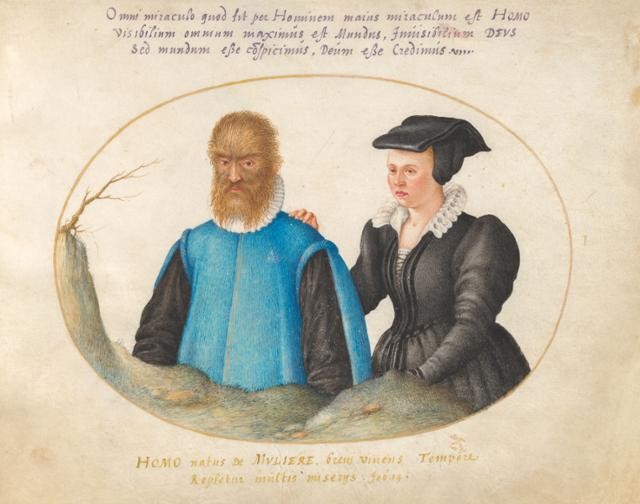 Omni miraculo quod fit per Hominem maius miraculum est HOMO
Visibilium omnium maximus est Mundus, Invisibilium DEUS
Sed mundum esse cōspicimus, Deum esse Credimus
HOMO natus de MVLIERE. breui viuens Tempore
Repletur multis miserys. Iob 14.